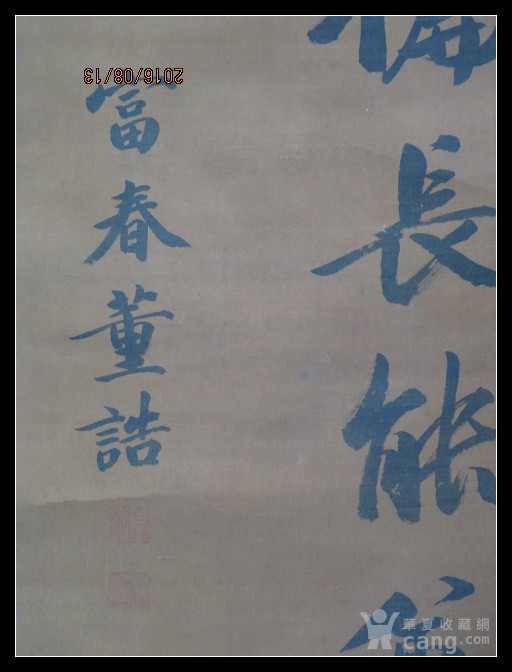 偏長能
富春董誥
2016/08/13
華夏收藏網
cang.com